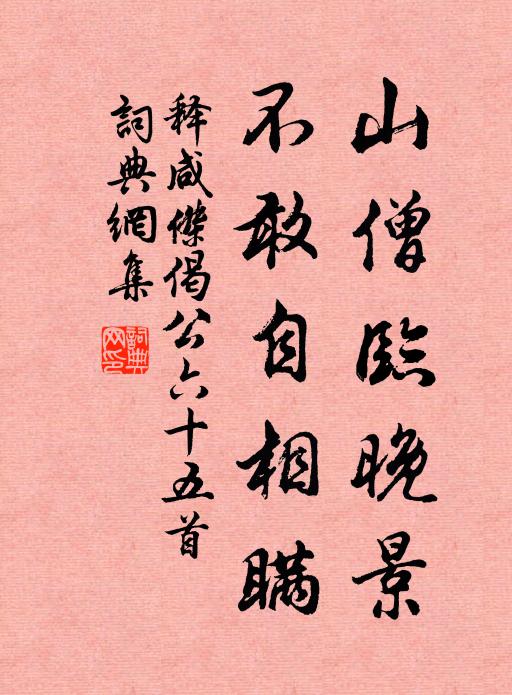 山僧臨晚景
不敢自相瞞
释咸傑偈公六十五首
詞典網集
詞典網印